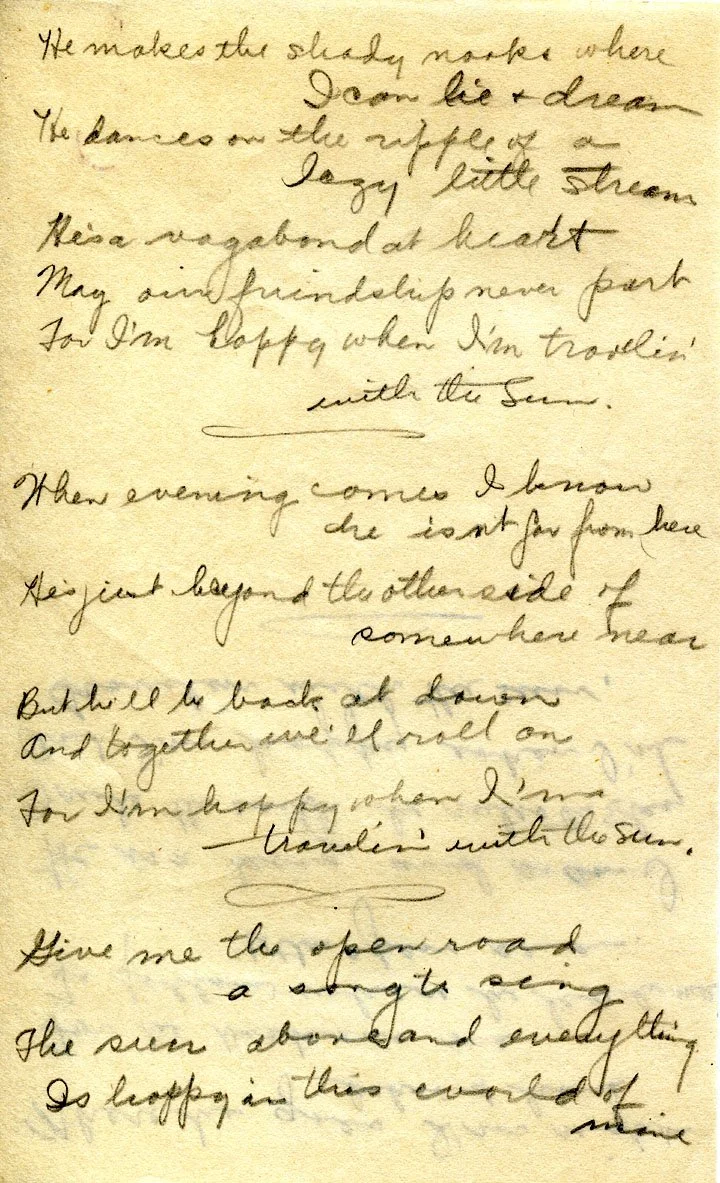 He makes the shady nooks where
I can lie + dream
He dances on the ripple of a
lazy little stream
He's a vagabond at heart
May our friendship never part
For I'm happy when I'm travelin'
with the Sun.
When evening comes I know
he isn't far from here
He's just beyond the other side of
somewhere near
But he'll be back at dawn
And together we'll roll on
For I'm happy when I'm
travelin' with the Sun.
Give me the open road
a song to sing
The sun above and everything
Is happy in this world of
mine